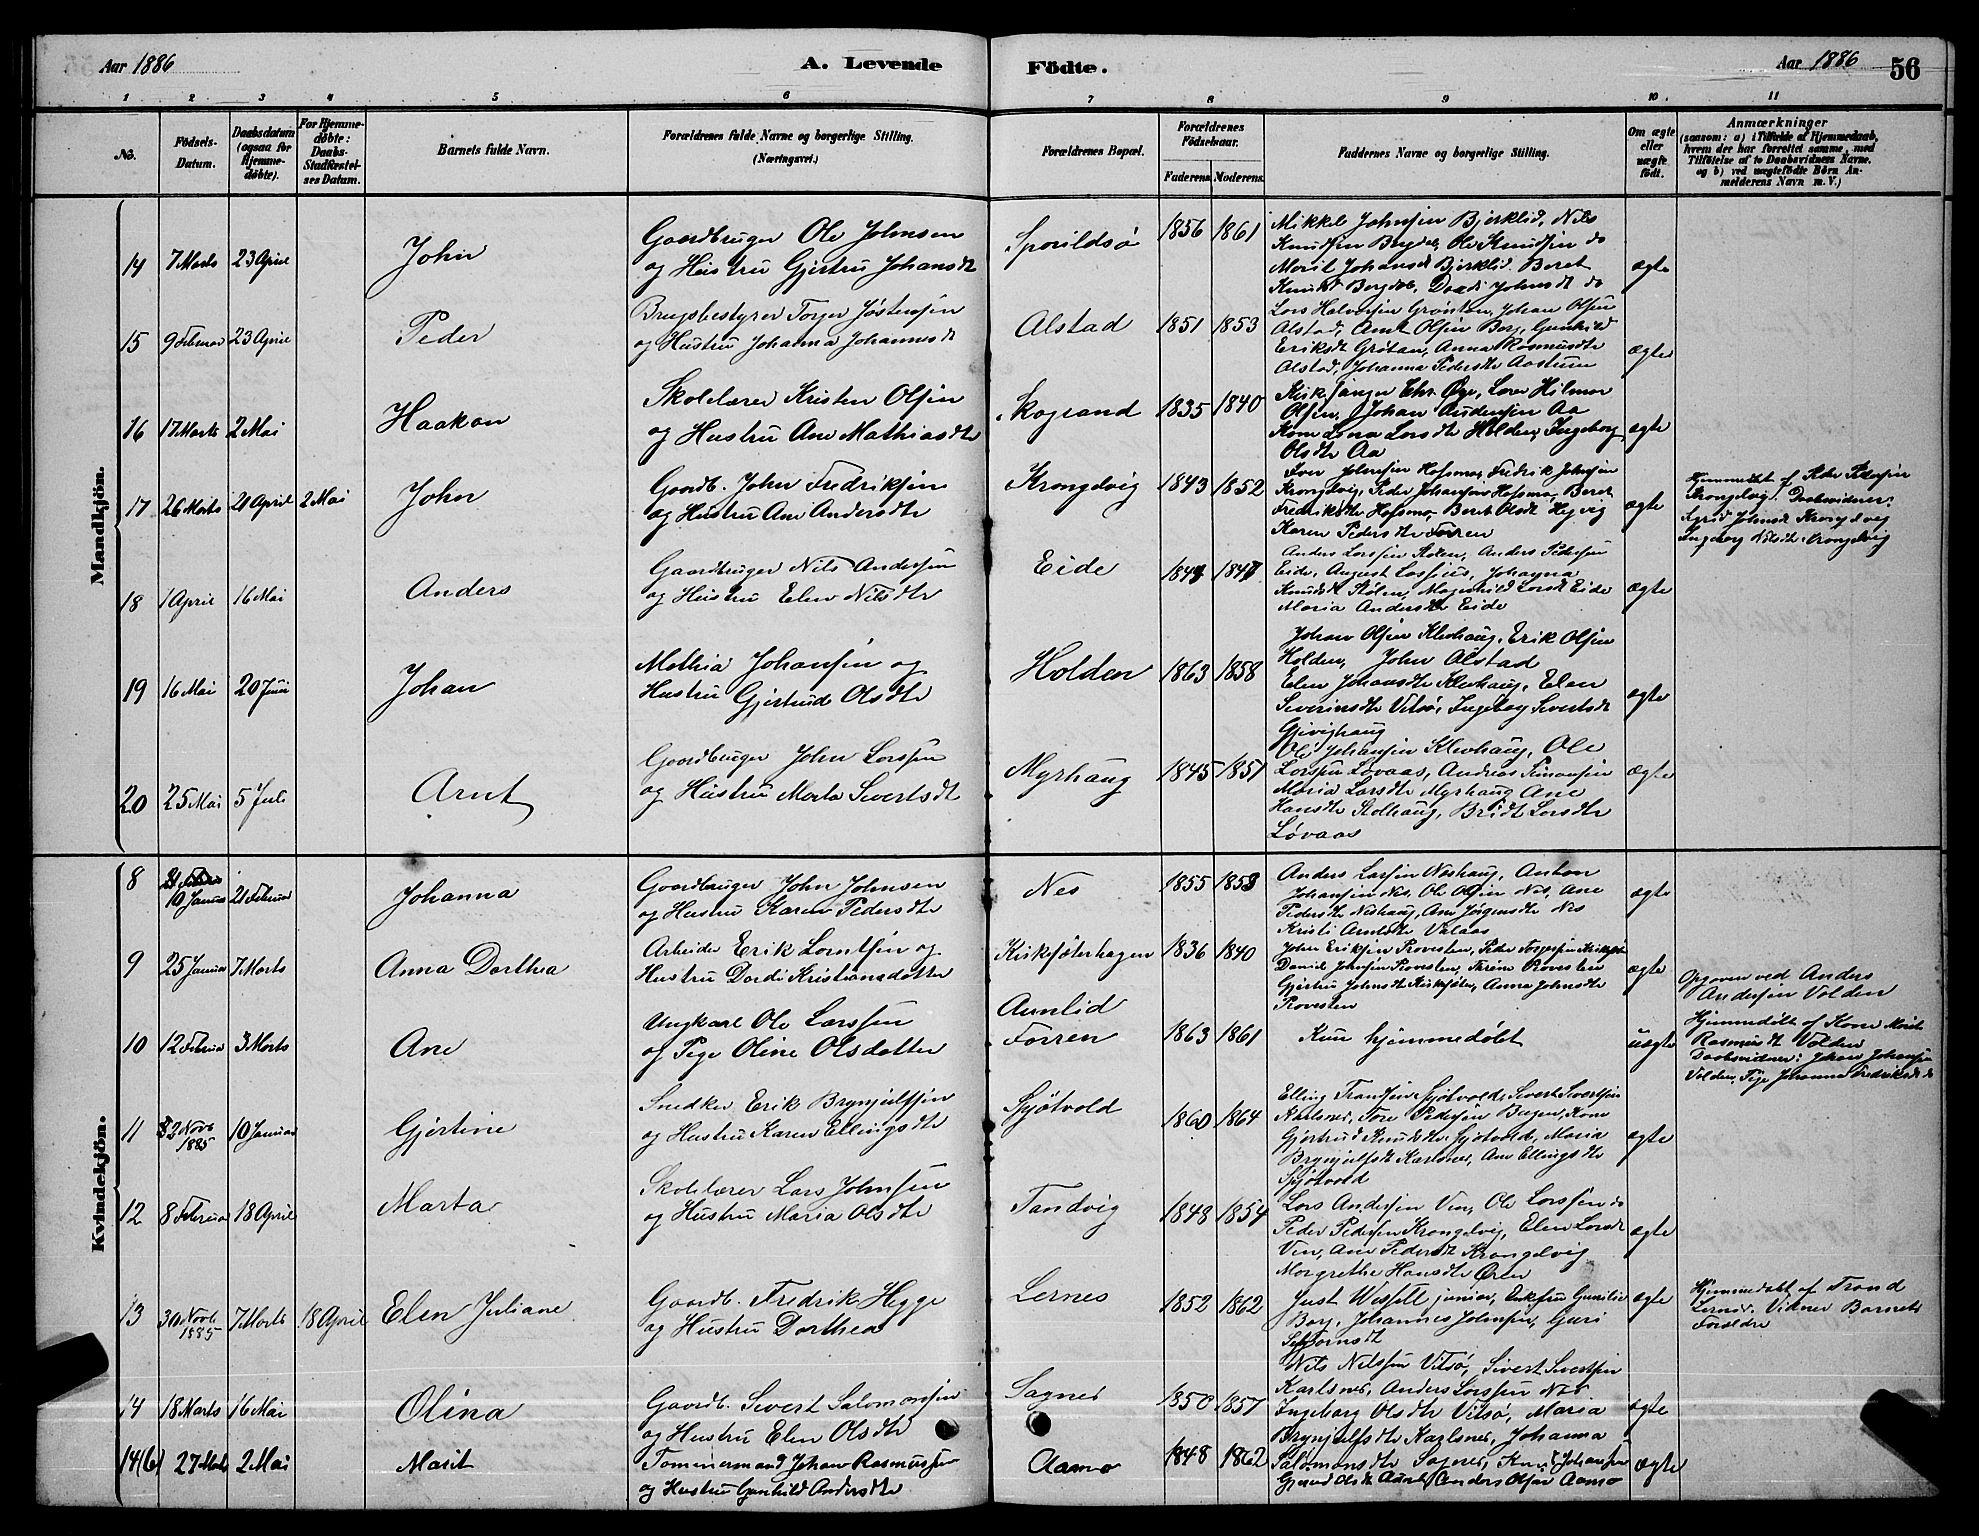 Aar 1886
A. Levende
Födte.
Aar 1886
56
1 2 3 4 5 6 7 8 9 10 11
No.
Födsels-Datum.
Daabsdatum (ogsaa for Hjemmedøbte).
For Hjemmedøbte: Daabs-Stadfæstelses Datum.
Barnets fulde Navn.
Forældrenes fulde Navne og borgerlige Stilling. (Næringsvei.)
Forældrenes Bopæl.
Forældrenes Födselsaar.
Faderens Moderens
Faddernes Navne og borgerlige Stilling.
Om ægte eller uægte födt.
Anmærkninger
(saasom: a) i Tilfælde af Hjemmedaab, hvem der har forrettet samme, med Tilföielse af to Daabsvidners Navne. og b) ved uægtefödte Börn Anmelderens Navn m. V.)
Mandkjön.
14 7 Marts 23 April John
Gaardbruger Ole Johnsen
og Hustru Gjertru Johansdt
Sporildsø 1856 1861
Mikkel Johnsen Bjerklid, Nils
Knudsen Bergdal, Ole Knudsen do
Marit Johansdt Bjerklid. Beret
Knudsdt Bergdal, Dordi Johnsdt do
ægte
15 9 Februar 23 April Peder
Brugsbestyrer Torger Jøstensen
og Hustru Johanna Johannesdt
Alstad 1851 1853
Lars Halvorsen Grøntan, Johan Olsen
Alstad, Arnt Olsen Berg, Gunhild
Eriksdt Grøtan, Anna Rasmusdtr
Alstad, Johanna Pedersdtr Aastrum
ægte
16 17 Marts 2 Mai Haakon
Skolelærer Kristen Olsen
og Hustru Ane Mathiasdtr
Skogrand 1835 1840
Kirksanger Chr. Øye, Lars Hilmar
Olsen, Johan Andersen Aa
Kone Lena Larsdtr Holden, Ingeborg
Olsdtr Aa
ægte
17 26 Marts 21 April 2 Mai John
Gaardb. John Fredriksen
og Hustru Ane Andersdtr
Krongelvig 1843 1852
Iver Johnsen Hofsmo, Fredrik Johnsen
Krongelvig, Peder Johansen Hofsmo, Beret
Fredriksdtr Hofsmo, Beret Olsdt Hejvig
Karen Pedersdtr Forren
ægte
Hjemmedøbt af Peder Pedersen
Krongelvig. Daabsvidner:
Sigrid Johnsdt Krongelvig
Ingeborg Nilsdtr Krongelvig
18 1 April 16 Mai Anders
Gaardbruger Nils Andersen
og Hustru Elen Nilsdtr
Eide 1844 1847
Anders Larssen Stølen, Anders Pedersen
Eide, August Lossius, Johanna
Knudsdt Stølen, Magnhild Larsdt Eide
Maria Andersdtr Eide
ægte
19 16 Mai 20 Juni Johan
Mathia Johansen og
Hustru Gjertrud Olsdtr
Holden 1863 1858
Johan Olsen Klevhaug, Erik Olsen
Holden, John Alstad
Elen Johansdtr Klevhaug, Elen
Severinsdtr Vitsø, Ingeborg Sivertsdt
Gjevighaug
ægte
20 25 Mai 5 Juli Arnt
Gaardbruger John Larssen
og Hustru Marta Sivertsdtr
Myrhaug 1845 1851
Ole Johansen Klevhaug, Ole
Larssen Løvaas, Andreas Simonsen
Maria Larsdtr Myrhaug Ane
Hansdtr Stolhaug, Bridt Larsdtr
Løvaas
ægte
Kvindekjön.
8 10 Januar 21 Februar Johanna
Gaardbruger John Johnsen
og Hustru Karen Pedersdtr
Nes 1855 1853
Anders Larsen Neshaug, Anton
Johansen Nes, Ole Olsen Nes, Ane
Pedersdtr Neshaug, Ane Jørgensdtr Nes
Kristi Arntsdtr Valaas
ægte
9 25 Januar 7 Marts Anna Dorthea
Arbeider Erik Lorntsen og
Hustru Dordi Kristiansdatter
Kirksæterhagen 1836 1840
John Eriksen Rovesten, Peder Torgersen Kirksæter
Daniel Johnsen Rovesten, Tirine Rovesten
Gjertru Johnsdt Kirksæter, Anna Johnsdtr
Rovesten
ægte
10 12 Februar 3 Marts Ane
Ungkarl Ole Larssen
og Pige Oline Olsdatter
Aunlid
Forren 1863 1861
Kun hjemmedøbt
uægte
Opgaven ved Anders
Andersen Volden
Hjemmedøbt af Kone Marit
Rasmusdt Volden
Daabsvidner: Johan Johansen
Volden, Pige Johanna Fredriksdt do
11 22 Novb 1885 10 Januar Gjertine
Snedker Erik Brynjulfsen
og Hustru Karen Ellingsdtr
Sjøtvold 1860 1864
Elling Trondsen Sjøtvold, Sivert Sivertsen
Karlsnes, Tore Pedersen Bugen, Kone
Gjertrud Knudsdtr Sjøtvold, Maria
Brynjulfsdt Karlsnes, Ane Ellingsdtr
Sjøtvold
ægte
12 8 Februar 18 April Marta
Skolelærer Lars Johnsen
og Hustru Maria Olsdtr
Tandvig 1848 1854
Lars Andersen Ven, Ole Larssen do
Peder Pedersen Krongelvig, Elen Larsdt
Ven, Ane Pedersdt Krongelvig
Margrethe Hansdtr Ören
ægte
13 30 Novb 1885 7 Marts 18 April Elen Juliane
Gaardb. Fredrik Hegge
og Hustru Dorthea
Lernes 1852 1862
Just Wessell junior, Eriksen Gunilie
Borg, Johannes Johnsen, Guri
ægte
Hjemmedøbt af Trond
Lernes. Vidner Barnets
Forældre
14 18 Marts 16 Mai Olina
Gaardb. Sivert Salomonsen
og Hustru Elen Olsdtr
Sagnes 1850 1857
Nils Nilssen Vitsø, Sivert Sivertsen
Karlsnes, Anders Larssen Nes
Ingeborg Olsdtr Vitsø, Maria
Brynjulfsdtr Karlsnes, Johanna
Salomonsdtr Sagnes
ægte
14(b) 27 Marts 2 Mai Marit
Tømmermand Johan Rasmussen
og Hustru Gunhild Andersdtr
Aamo 1848 1862
Knut Johansen
Anders Olsen Aamo
ægte